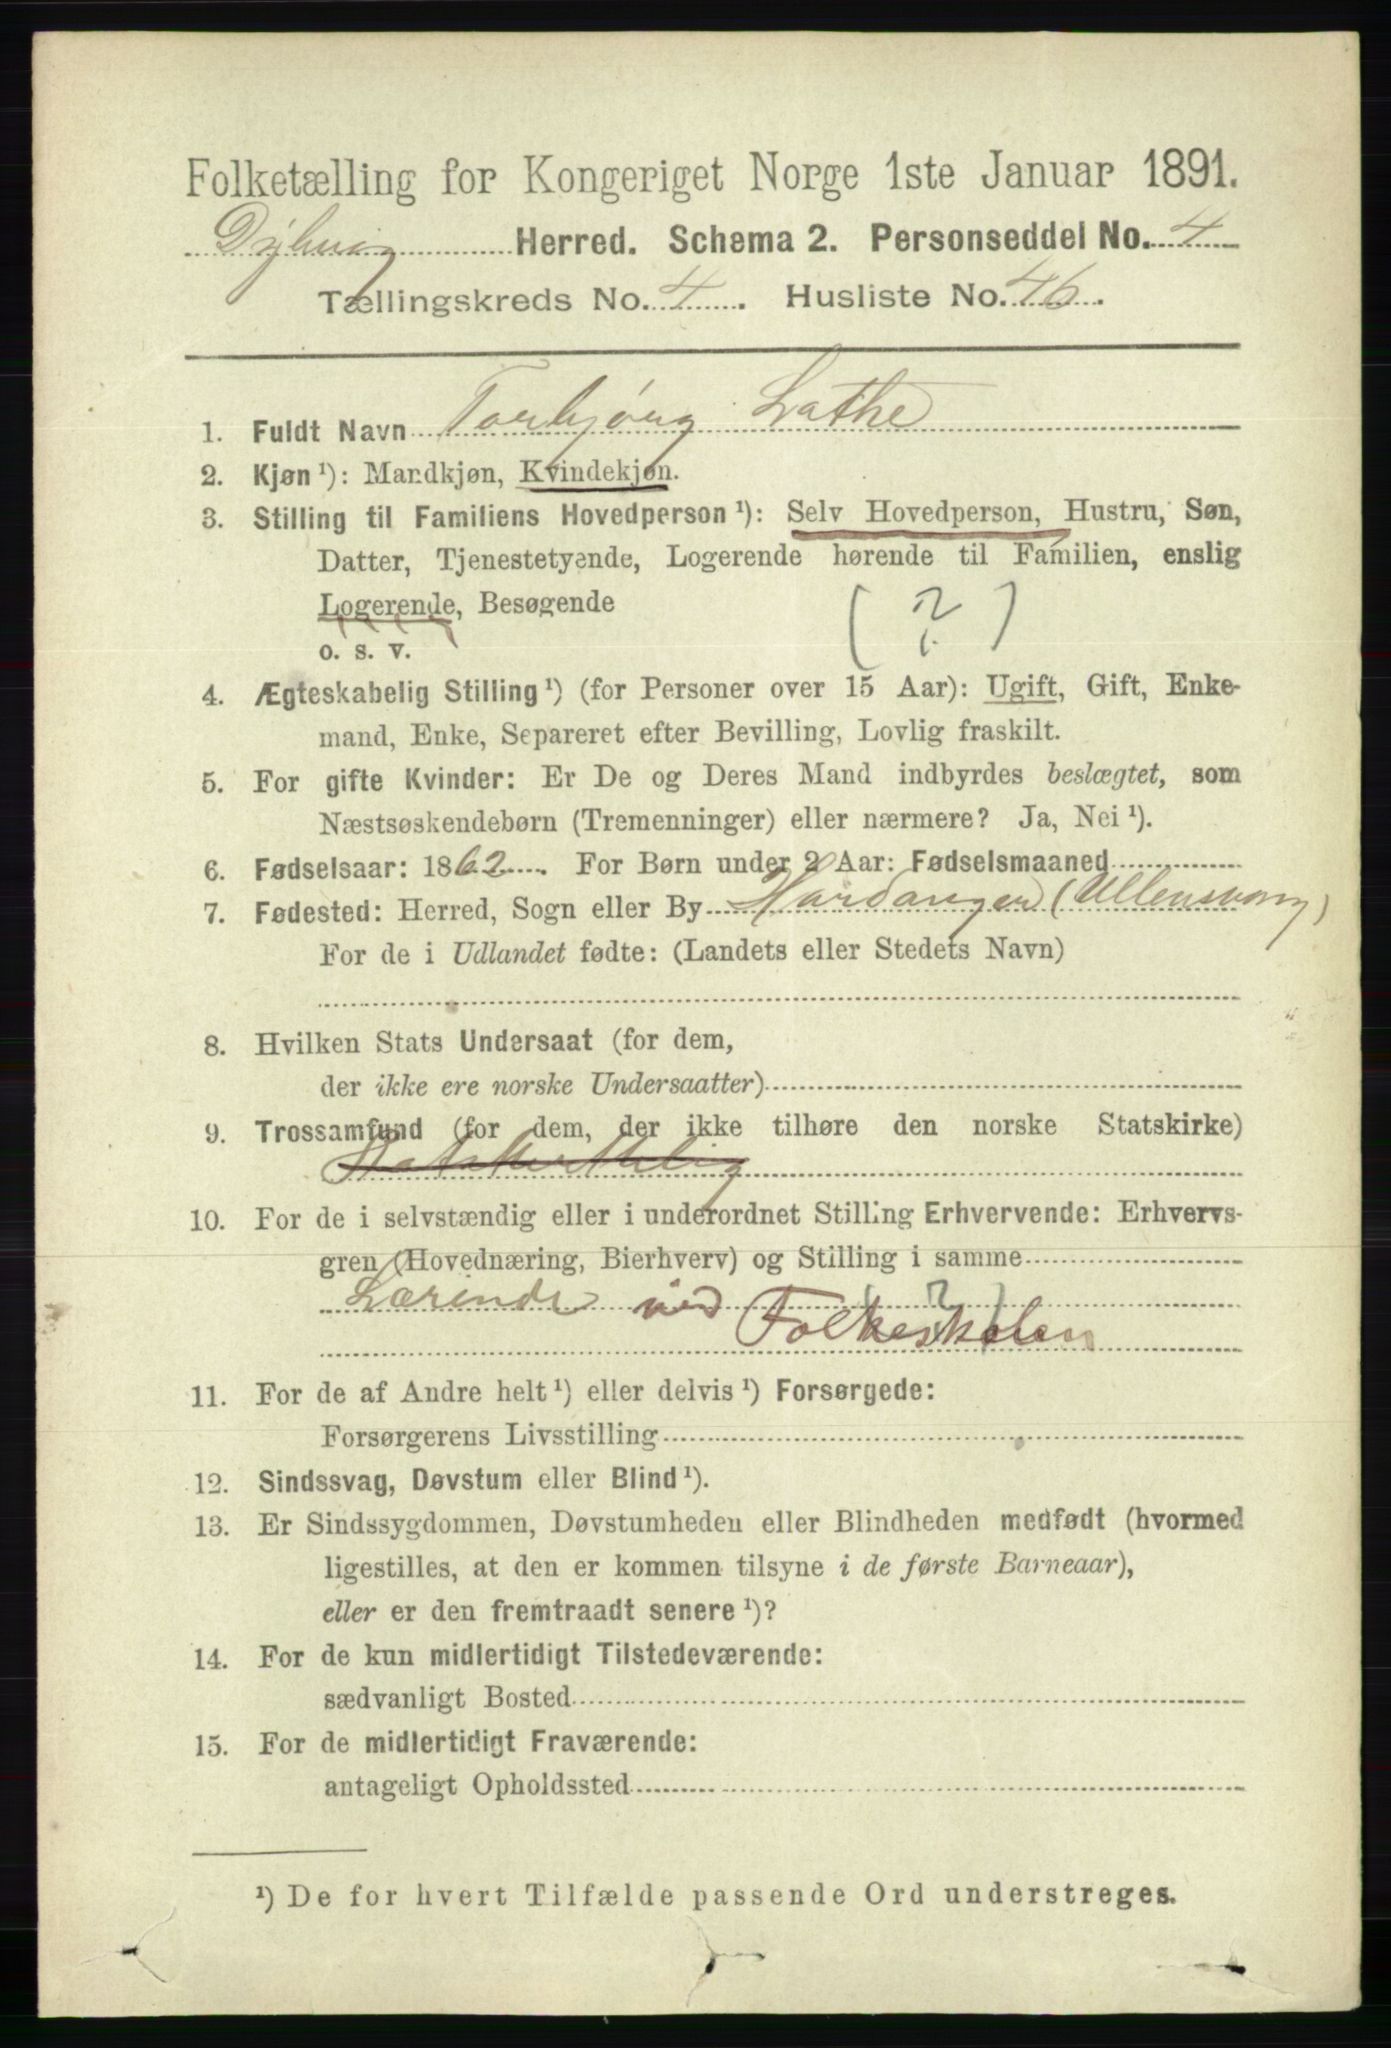 Folketælling for Kongeriget Norge 1ste Januar 1891.
Dybvig Herred. Schema 2. Personseddel No. 4
Tællingskreds No. 4. Husliste No. 46.
1. Fuldt Navn Torbjørg Lothe
2. Kjøn ¹): Mandkjøn, Kvindekjøn.
3. Stilling til Familiens Hovedperson ¹): Selv Hovedperson, Hustru, Søn,
Datter, Tjenestetyende, Logerende hørende til Familien, enslig
Logerende, Besøgende
(?)
o. s. v.
4. Ægteskabelig Stilling ¹) (for Personer over 15 Aar): Ugift, Gift, Enke-
mand, Enke, Separeret efter Bevilling, Lovlig fraskilt.
5. For gifte Kvinder: Er De og Deres Mand indbyrdes beslægtet, som
Næstsøskendebørn (Tremenninger) eller nærmere? Ja, Nei ¹).
6. Fødselsaar: 1862. For Børn under 2 Aar: Fødselsmaaned
7. Fødested: Herred, Sogn eller By Hardanger (Ullensvang)
For de i Udlandet fødte: (Landets eller Stedets Navn)
8. Hvilken Stats Undersaat (for dem,
der ikke ere norske Undersaatter)
9. Trossamfund (for dem, der ikke tilhøre den norske Statskirke)
Statskirkelig
10. For de i selvstændig eller i underordnet Stilling Erhvervende: Erhvervs-
gren (Hovednæring, Bierhverv) og Stilling i samme
Lærinde ved (?)
Folkeskolen
11. For de af Andre helt ¹) eller delvis ¹) Forsørgede:
Forsørgerens Livsstilling
12. Sindssvag, Døvstum eller Blind ¹).
13. Er Sindssygdommen, Døvstumheden eller Blindheden medfødt (hvormed
ligestilles, at den er kommen tilsyne i de første Barneaar),
eller er den fremtraadt senere ¹)?
14. For de kun midlertidigt Tilstedeværende:
sædvanligt Bosted
15. For de midlertidigt Fraværende:
antageligt Opholdssted
¹) De for hvert Tilfælde passende Ord understreges.